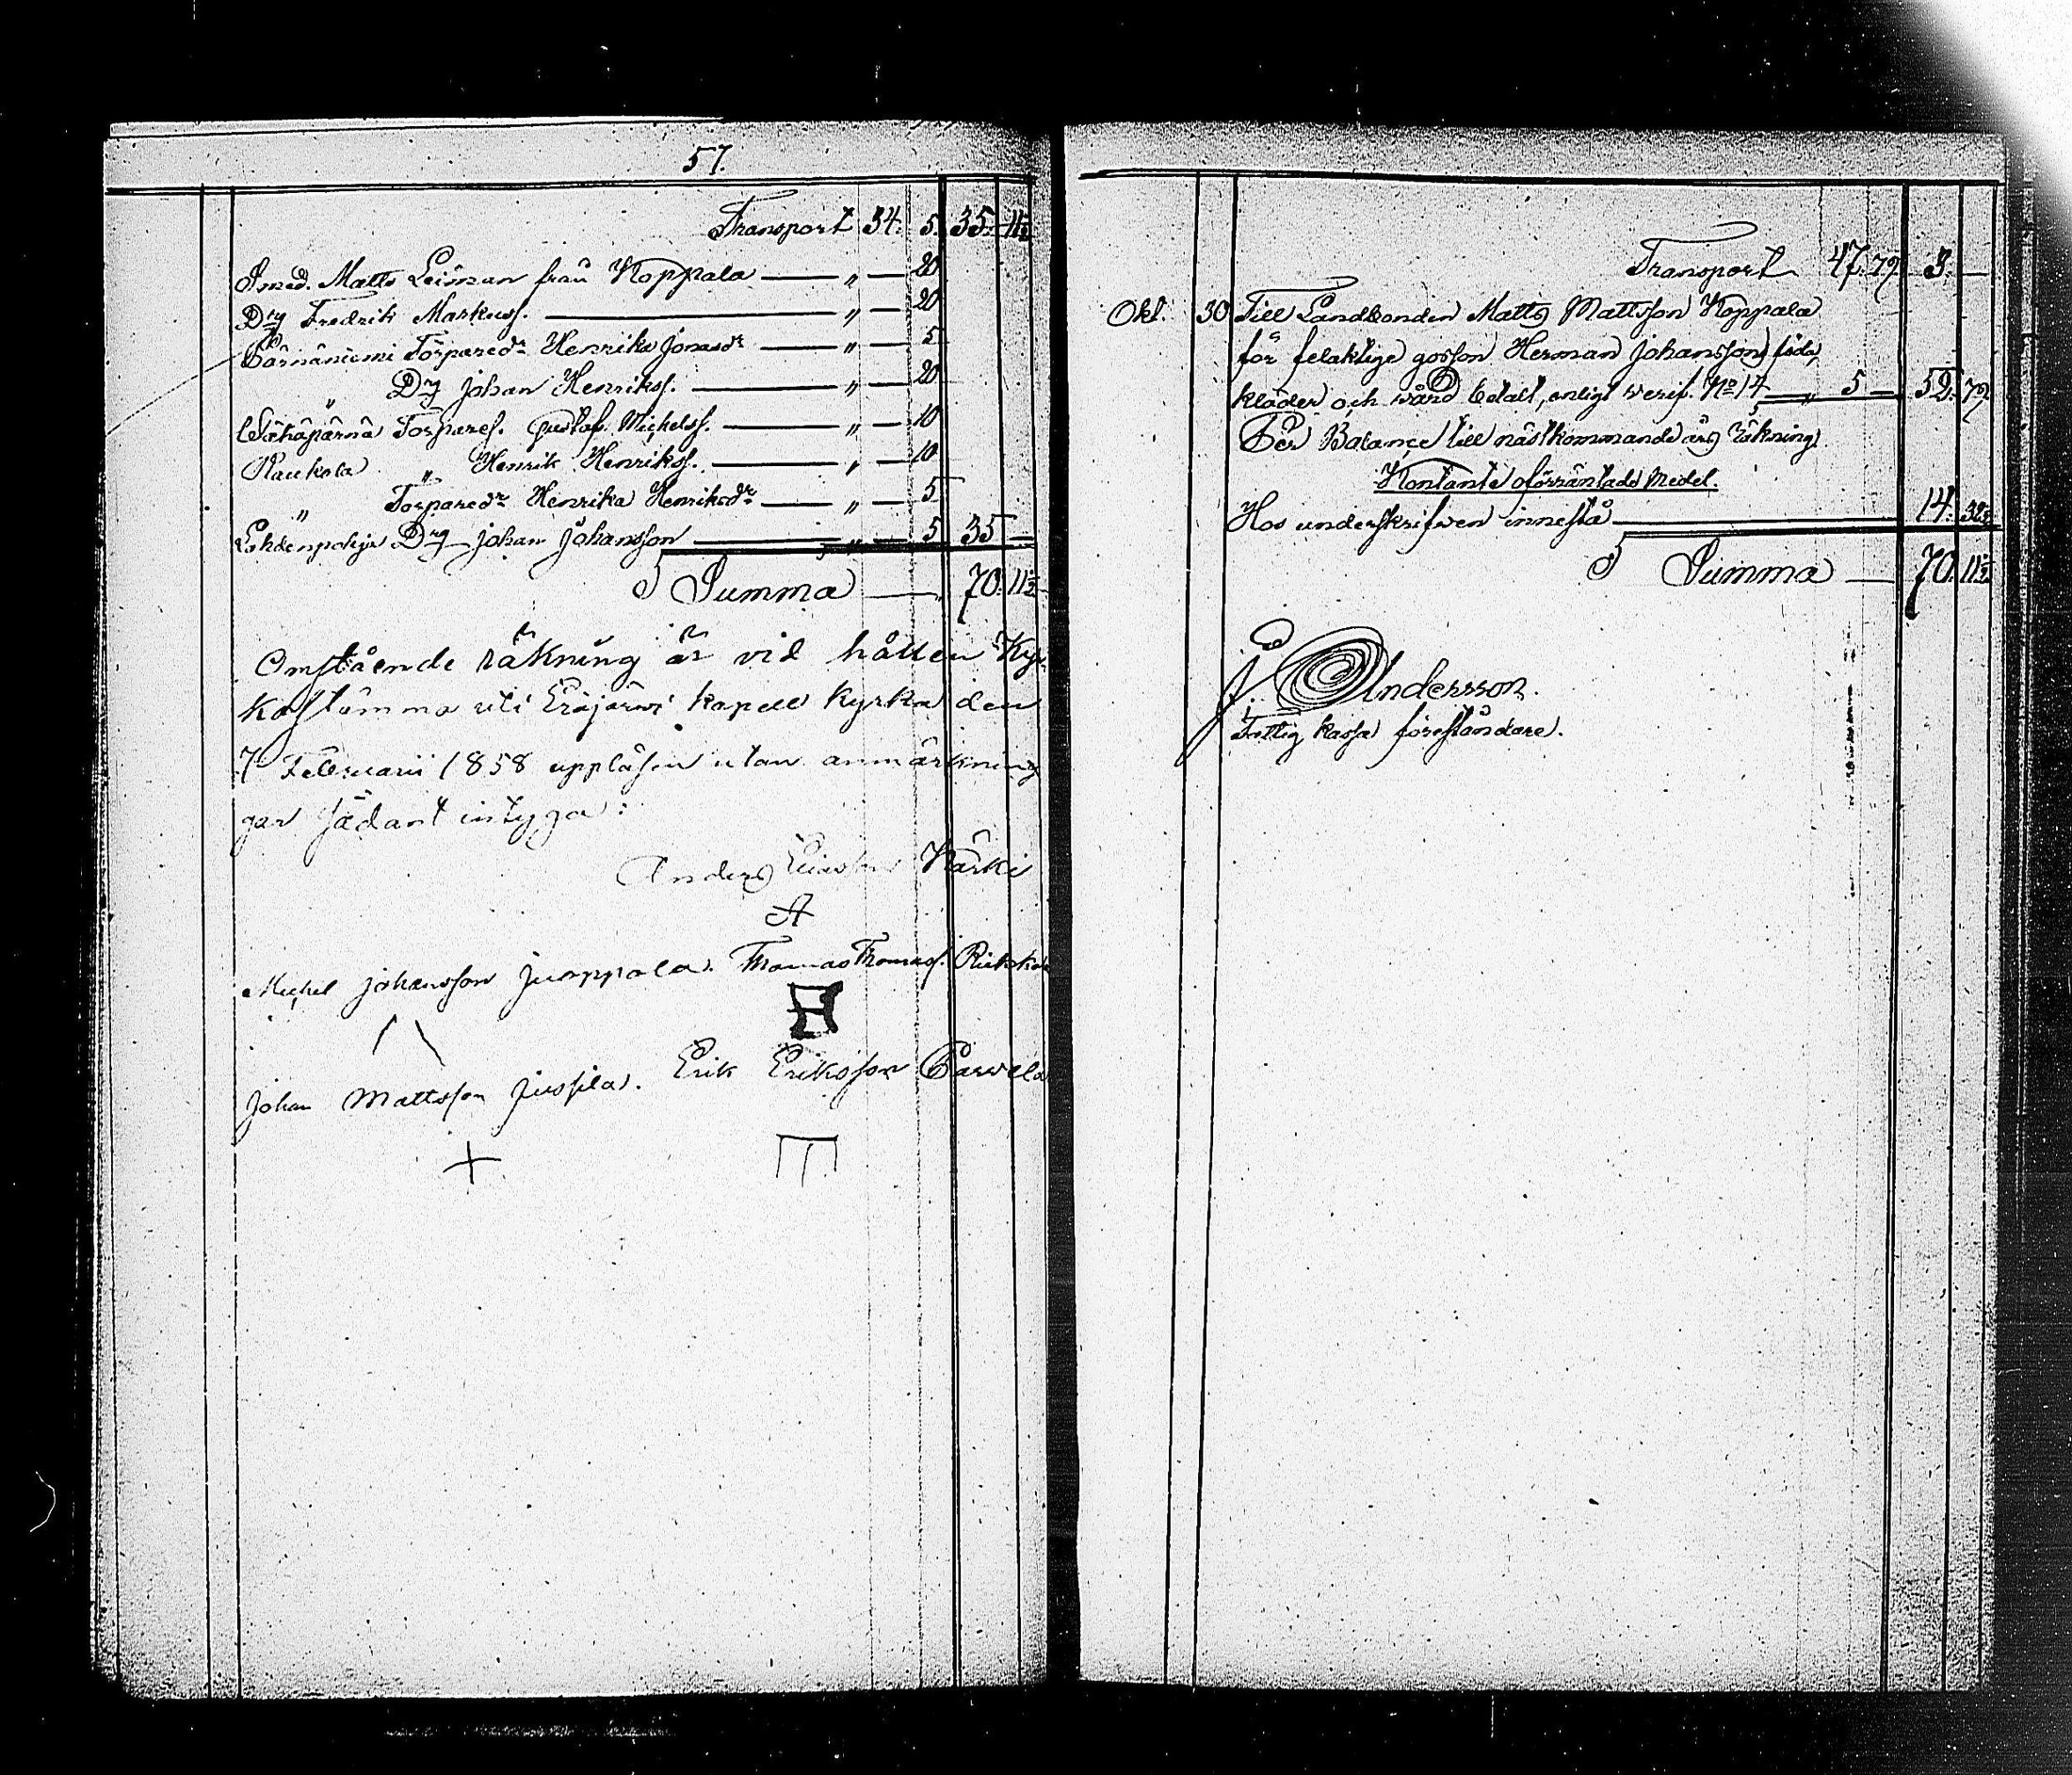 57.
Transport 34. 5. 35. 11½
Smed. Matts Leiman från Koppala — „ — 20
Drg Fredrik Markuss. — „ — 20
Pärnäniemi Torparedr Henrika Jonasdr — „ — 5
„ Drg Johan Henrikss. — „ — 20
Wähäpärnä Torpares. Gustaf Michelss. — „ — 10
Raukola „ Henrik Henrikss. — „ — 10
„ Torparedr Henrika Henriksdr — „ — 5
Lahdenpohja Drg Johan Johansson — „ — 5 35 —
Summa — 70. 11½
Omstående räkning är vid hållen Kyr-
kostämma uti Eräjärwi kapell kyrka den
7 Februarii 1858 uppläsen utan anmärknin
gar sådant intyga:
Anders Kärki
A
Michel Johansson Juoppala. Thomas Thomass.
Johan Mattsson Jussila. Erik Eriksson Parvela
Transport 47. 79. 3. —
Okt. 30 Till Landbonden Matts Mattsson Koppala
för felaktige gosson Herman Johanssons föda,
kläder och vård betalt, enligt verif. No 14 „ 5 — 52. 79
Per Balance till nästkommande års räkning
Kontante oförräntade Medel.
Hos underskrifven innestå — 14. 32½
Summa — 70. 11½
J. Andersson.
Fattig kassa föreståndare.